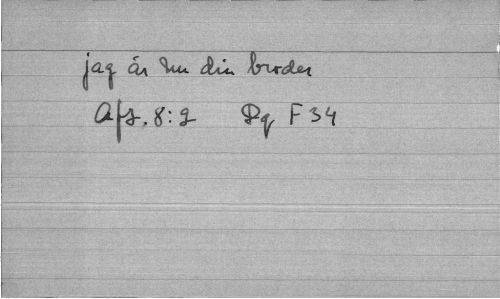 jag är nu din broder
Afz. 8:2 Dq F 34